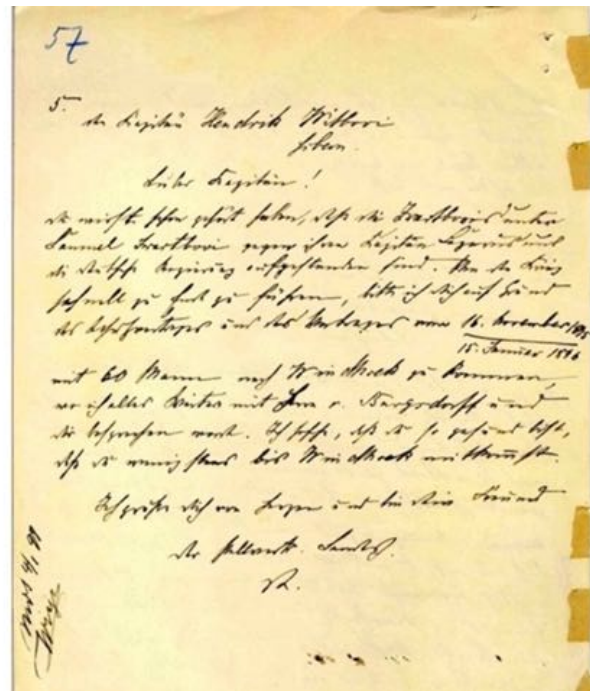 57
5.
An Kapitän Hendrik Witbooi
Gibeon.
Lieber Kapitän!
Du wirst schon gehört haben, daß die Zwartboois unter
Samuel Zwartbooi gegen ihren Kapitän Lazarus und
die Deutsche Regierung aufgestanden sind. Um den Krieg
schnell zu Ende zu führen, bitte ich Dich auf Grund
des Schutzvertrages und des Vertrages vom 16. November 1895
15. Januar 1896
mit 60 Mann nach Windhoek zu kommen,
wo ich alles Weitere mit Herrn v. Burgsdorff und
Dir besprechen werde. Ich hoffe, daß Du so gesund bist,
daß Du wenigstens bis Windhoek mitkommst.
Ich grüße Dich von Herzen und bin Dein Freund
Der stellvertr. Landes